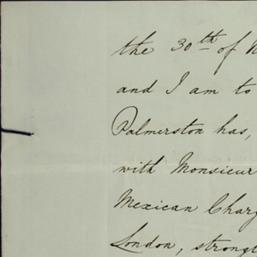 the 30th of
and I am to
Palmerston has,
with Monsieur
Mexican
London,